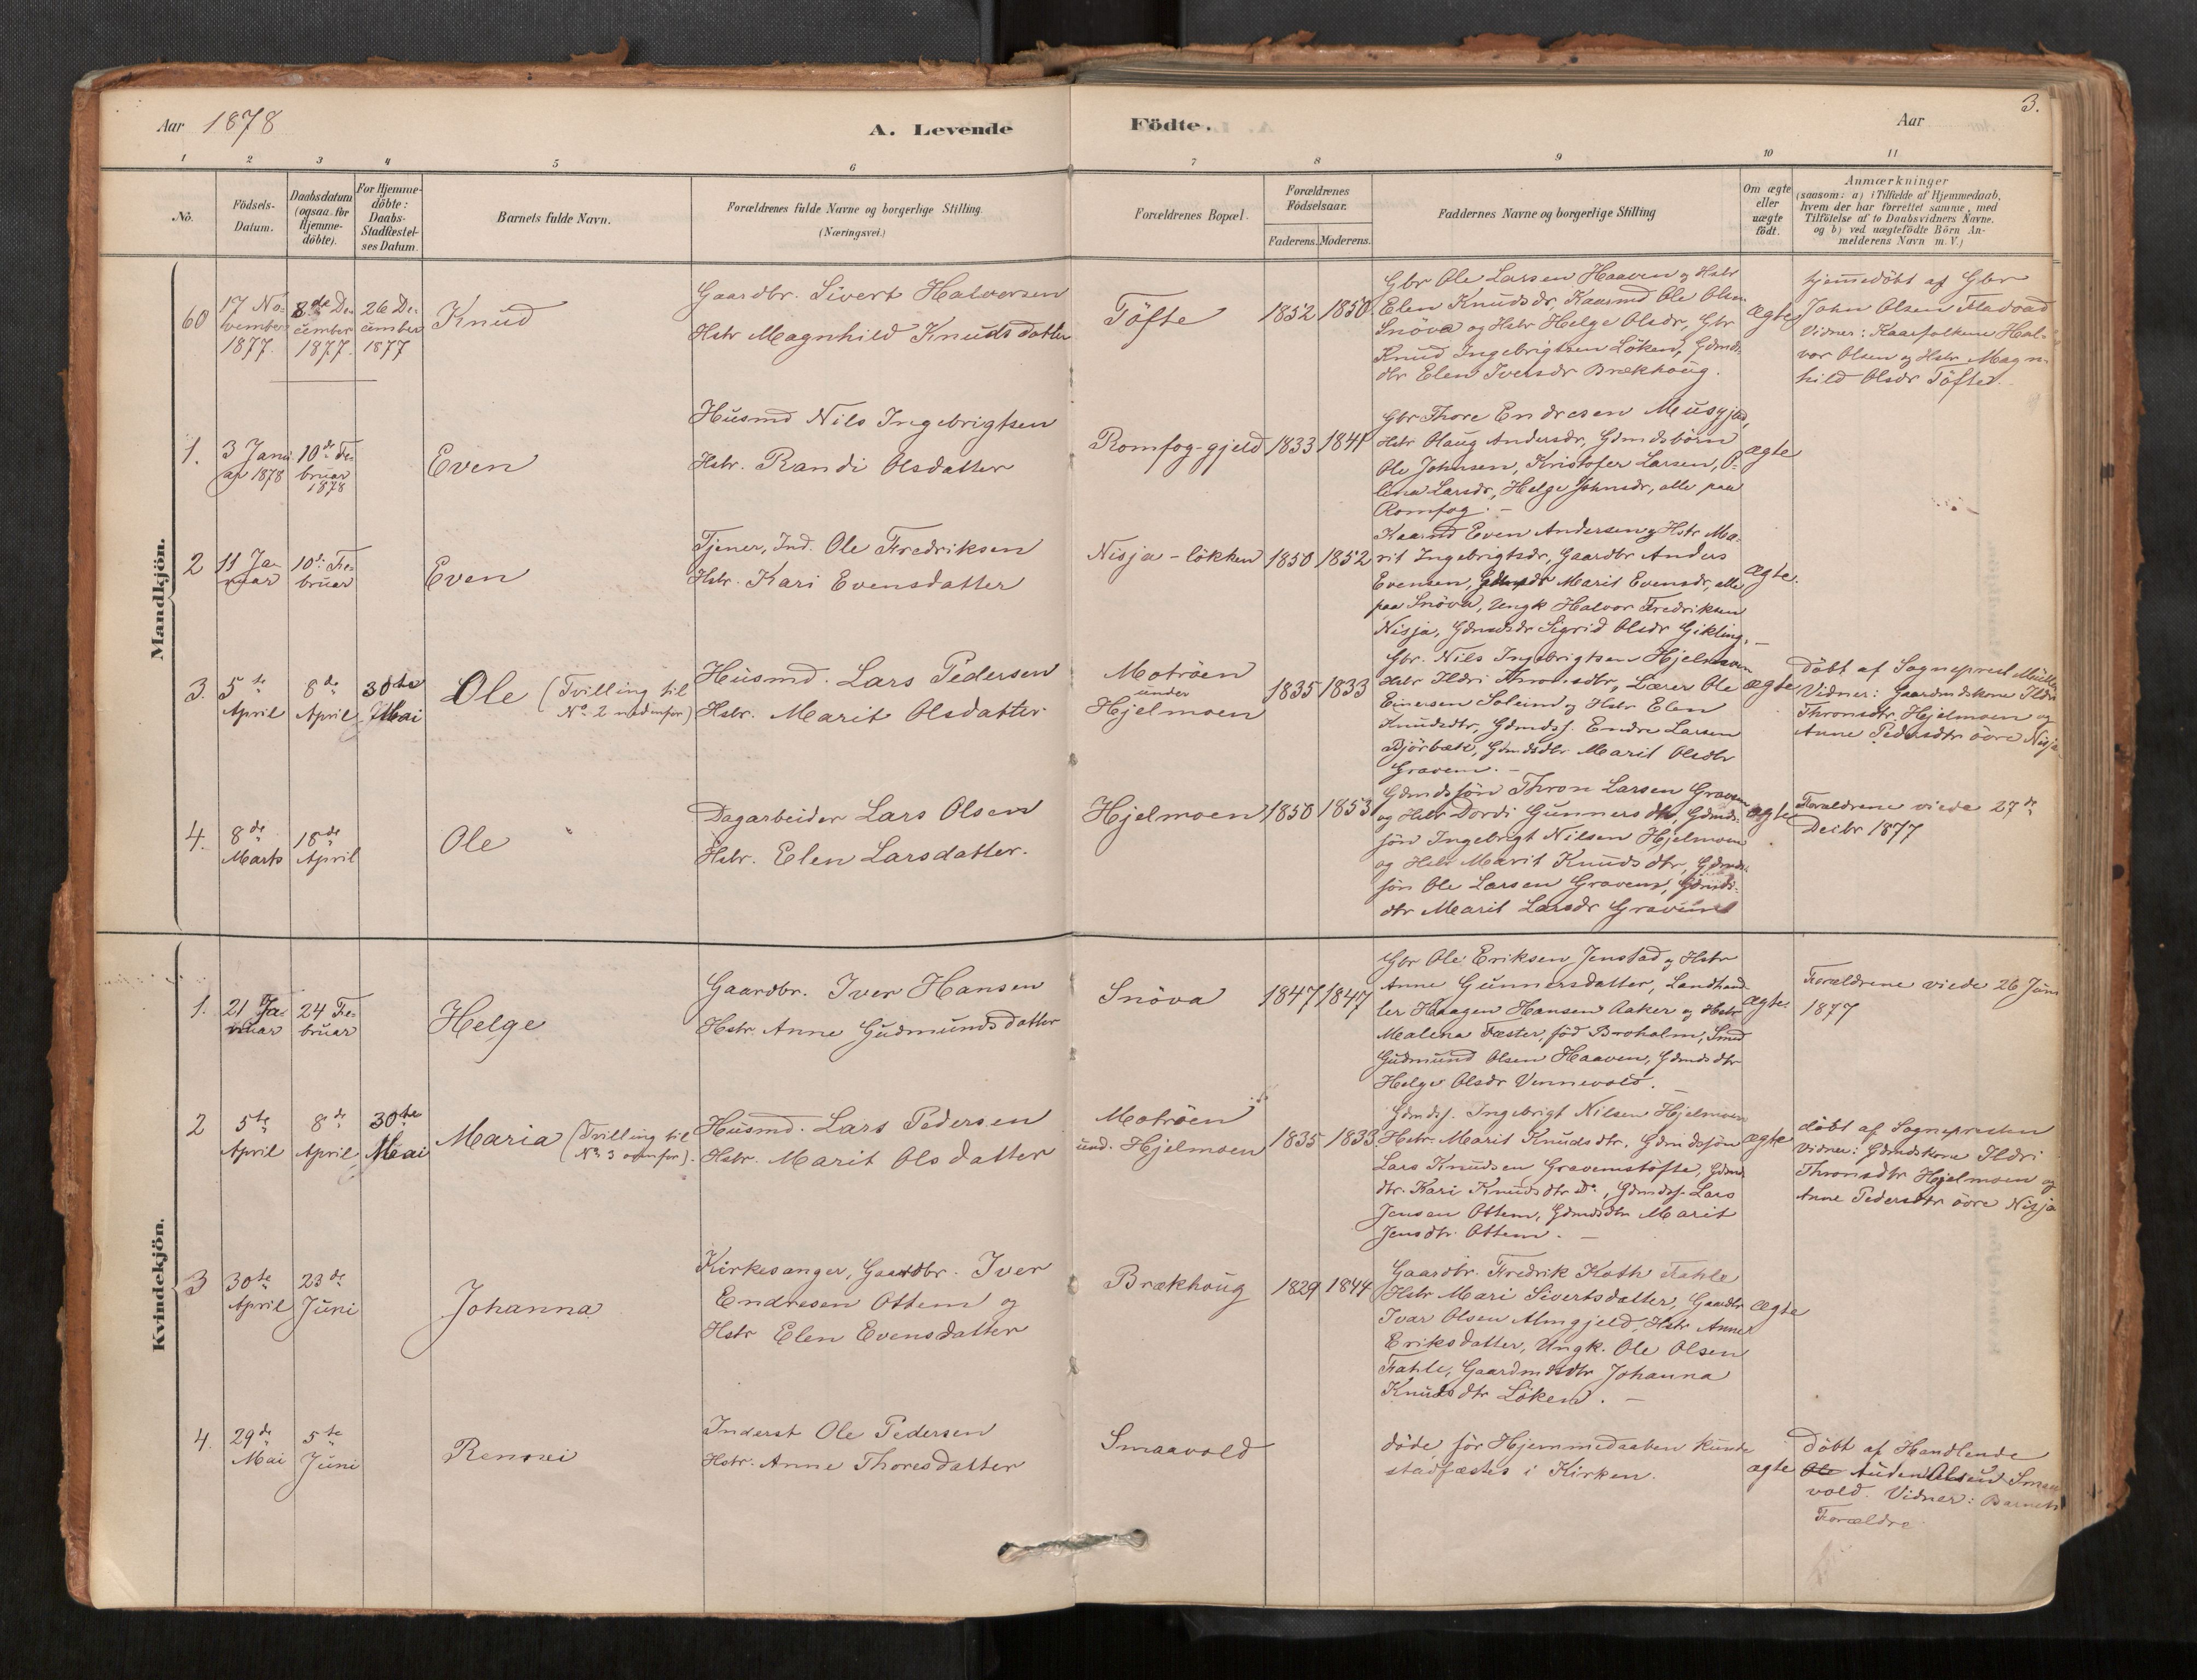 Aar 1878
A. Levende
Födte.
Aar
3.
1 2 3 4 5 6 7 8 9 10 11
No.
Födsels-
Datum.
Daabsdatum
(ogsaa for
Hjemme-
döbte).
For Hjemme-
döbte:
Daabs-
Stadfæstel-
ses Datum.
Barnets fulde Navn.
Forældrenes fulde Navne og borgerlige Stilling.
(Næringsvei.)
Forældrenes Bopæl.
Forældrenes
Födselsaar.
Faderens. Moderens.
Faddernes Navne og borgerlige Stilling
Om ægte
eller
uægte
födt.
Anmærkninger
(saasom: a) i Tilfælde af Hjemmedaab,
hvem der har forrettet samme, med
Tilföielse af to Daabsvidners Navne.
og b) ved uægtefödte Börn An-
melderens Navn m. V.)
Mandkjön.
60
17 No-
vember
1877.
8de De-
cember
1877.
26 De-
cember
1877
Knud
Gaardbr. Sivert Halvorsen
Hstr Magnhild Knudsdatter
Töfte
1852 1850
Gbr Ole Larsen Haaven og Hstr
Elen Knudsdr, Kaarmd Ole Olsen
Snöva og Hstr Helge Olsdr, Gbr
Knud Ingebrigtsen Löken, Gdmds-
dtr Elen Iversdr Brækhoug.
ægte
hjemmedöbt af Gbr
John Olsen Fladvad
Vidner: Kaarfolkene Hal-
vor Olsen og Hstr Magn-
hild Olsdr Töfte.
1.
3 Janu
ar 1878
10de Fe-
bruar
1878
Even
Husmd Nils Ingebrigtsen
Hstr. Randi Olsdatter
Romfog-gjeld
1833 1841
Gbr Thore Endresen Musgjed,
Hstr Olaug Andersdr, Gdmdsbörn
Ole Johnsen, Kristofer Larsen, O-
lina Larsdr, Helge Johnsdr, alle paa
Romfog. -
ægte
2
11 Ja-
nuar
10de Fe-
bruar
Even
Tjener, Ind. Ole Fredriksen
Hstr. Kari Evensdatter
Nisja-lökken
1850 1852
Kaarmd Even Andersen og Hstr Ma-
rit Ingebrigtsdr, Gaardbr Anders
Evensen, Gdmdsdr Marit Evensdr, alle
paa Snöva, Ungk Halvor Fredriksen
Nisja, Gdmdsdr Sigrid Olsdr Gikling. -
ægte.
3.
5te
April
8de
April
30te
Mai
Ole (Tvilling til
No. 2 nedenfor)
Husmd. Lars Pedersen
Hstr. Marit Olsdatter
Moträen
under
Hjelmoen
1835 1833
Gbr. Nils Ingebrigtsen Hjelmoen
Hstr Ildri Thronsdtr, Lærer Ole
Einersen Soleim og Hstr Elen
Knudsdtr, Gdmdss. Endre Larsen
Björbæk, Gdmdsdtr Marit Olsdtr
Gravem. -
ægte
döbt af Sogneprest Müller
Vidner: Gaardmdskone Ildri
Thronsdtr Hjelmoen og
Anne Pedersdtr övre Nisja
4.
8de
Marts
18de
April
Ole
Dagarbeider Lars Olsen
Hstr. Elen Larsdatter.
Hjelmoen
1850 1853
Gdmdssön Thron Larsen Gravem
og Hstr Dordi Gunnersdtr, Gdmds-
sön Ingebrigt Nilsen Hjelmoen
og Hstr Marit Knudsdtr, Gdmds-
sön Ole Larsen Gravem, Gdmds-
dtr Marit Larsdr Gravem
ægte
Forældrene viede 27de
Decbr 1877
Kvindekjön.
1.
21 Ja-
nuar
24 Fe-
bruar
Helge
Gaardbr. Iver Hansen
Hstr. Anne Gudmundsdatter
Snöva
1847 1847
Gbr Ole Eriksen Jenstad og Hstr
Anne Gunnersdatter, Landhand-
ler Haagen Hansen Aaker og Hstr
Malena Fæster, föd Broholm, Smed
Gudmund Olsen Haaven, Gdmdsdtr
Helge Olsdr Vennevold.
ægte.
Forældrene viede 26 Juni
1877
2
5te
April
8de
April
30te
Mai
Maria (Tvilling til
No. 3 ovenfor).
Husmd. Lars Pedersen
Hstr. Marit Olsdatter
Moträen
und. Hjelmoen
1835 1833
Gdmdss. Ingebrigt Nilsen Hjelmoen
Hstr. Marit Knudsdtr, Gdmdssön
Lars Knudsen Gravemstöfte, Gdmds
dtr. Kari Knudsdtr Do, Gdmdss. Lars
Jensen Ottem, Gdmdsdtr Marit
Jensdtr Ottem. -
ægte
döbt af Sognepresten
Vidner: Gdmdskone Ildri
Thronsdtr Hjelmoen og
Anne Pedersdtr övre Nisja
3
30te
April
23de
Juni
Johanna
Kirkesanger, Gaardbr. Iver
Endresen Ottem og
Hstr Elen Evensdatter
Brækhoug
1829 1844
Gaardbr. Fredrik Koth Fahle
Hstr Mari Sivertsdatter, Gaardbr
Ivar Olsen Almgjeld, Hstr Anne
Eriksdatter, Ungk. Ole Olsen
Fahle, Gaardmdsdtr Johanna
Knudsdtr Löken. -
ægte
4.
29de
Mai
5te
Juni
Renoui
Inderst Ole Pedersen
Hstr. Anne Thoresdatter
Smaavold
döde för Hjemmedaaben kunde
stadfæstes i Kirken.
ægte
Döbt af Handlende
Ole Auden Olsen Smaa
vold. Vidner: Barnets
Forældre